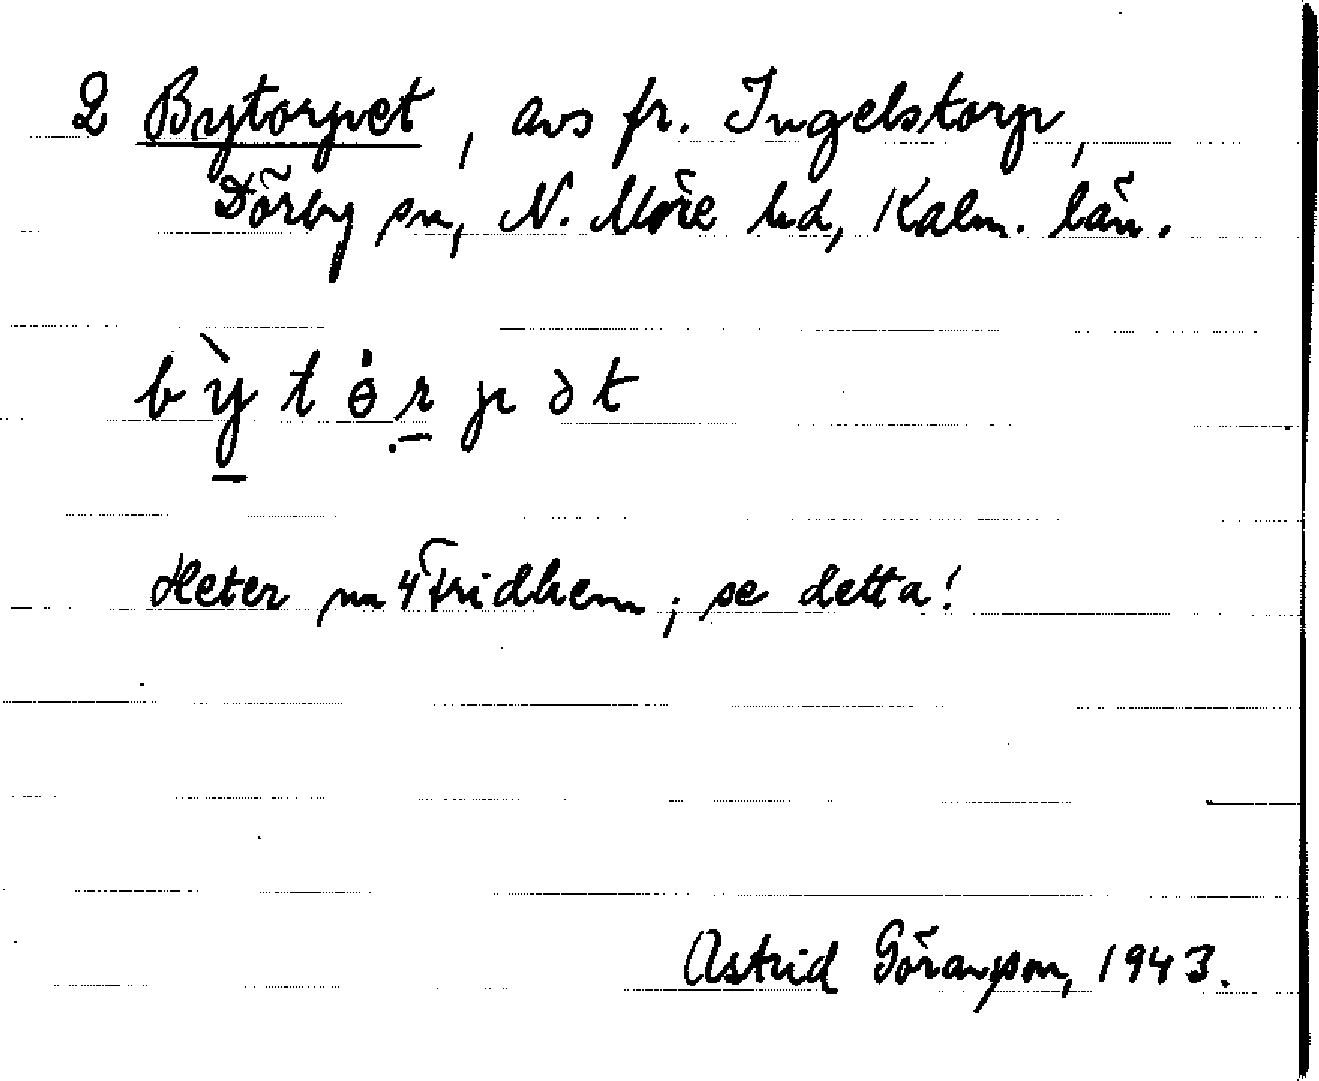 2 Bytorpet, avs fr. Ingelstorp,
Dörby sn, N. Möre hd, Kalm. län.
bỳtȯrpət
Heter nu 4 Fridhem; se detta!
Astrid Göransson, 1943.